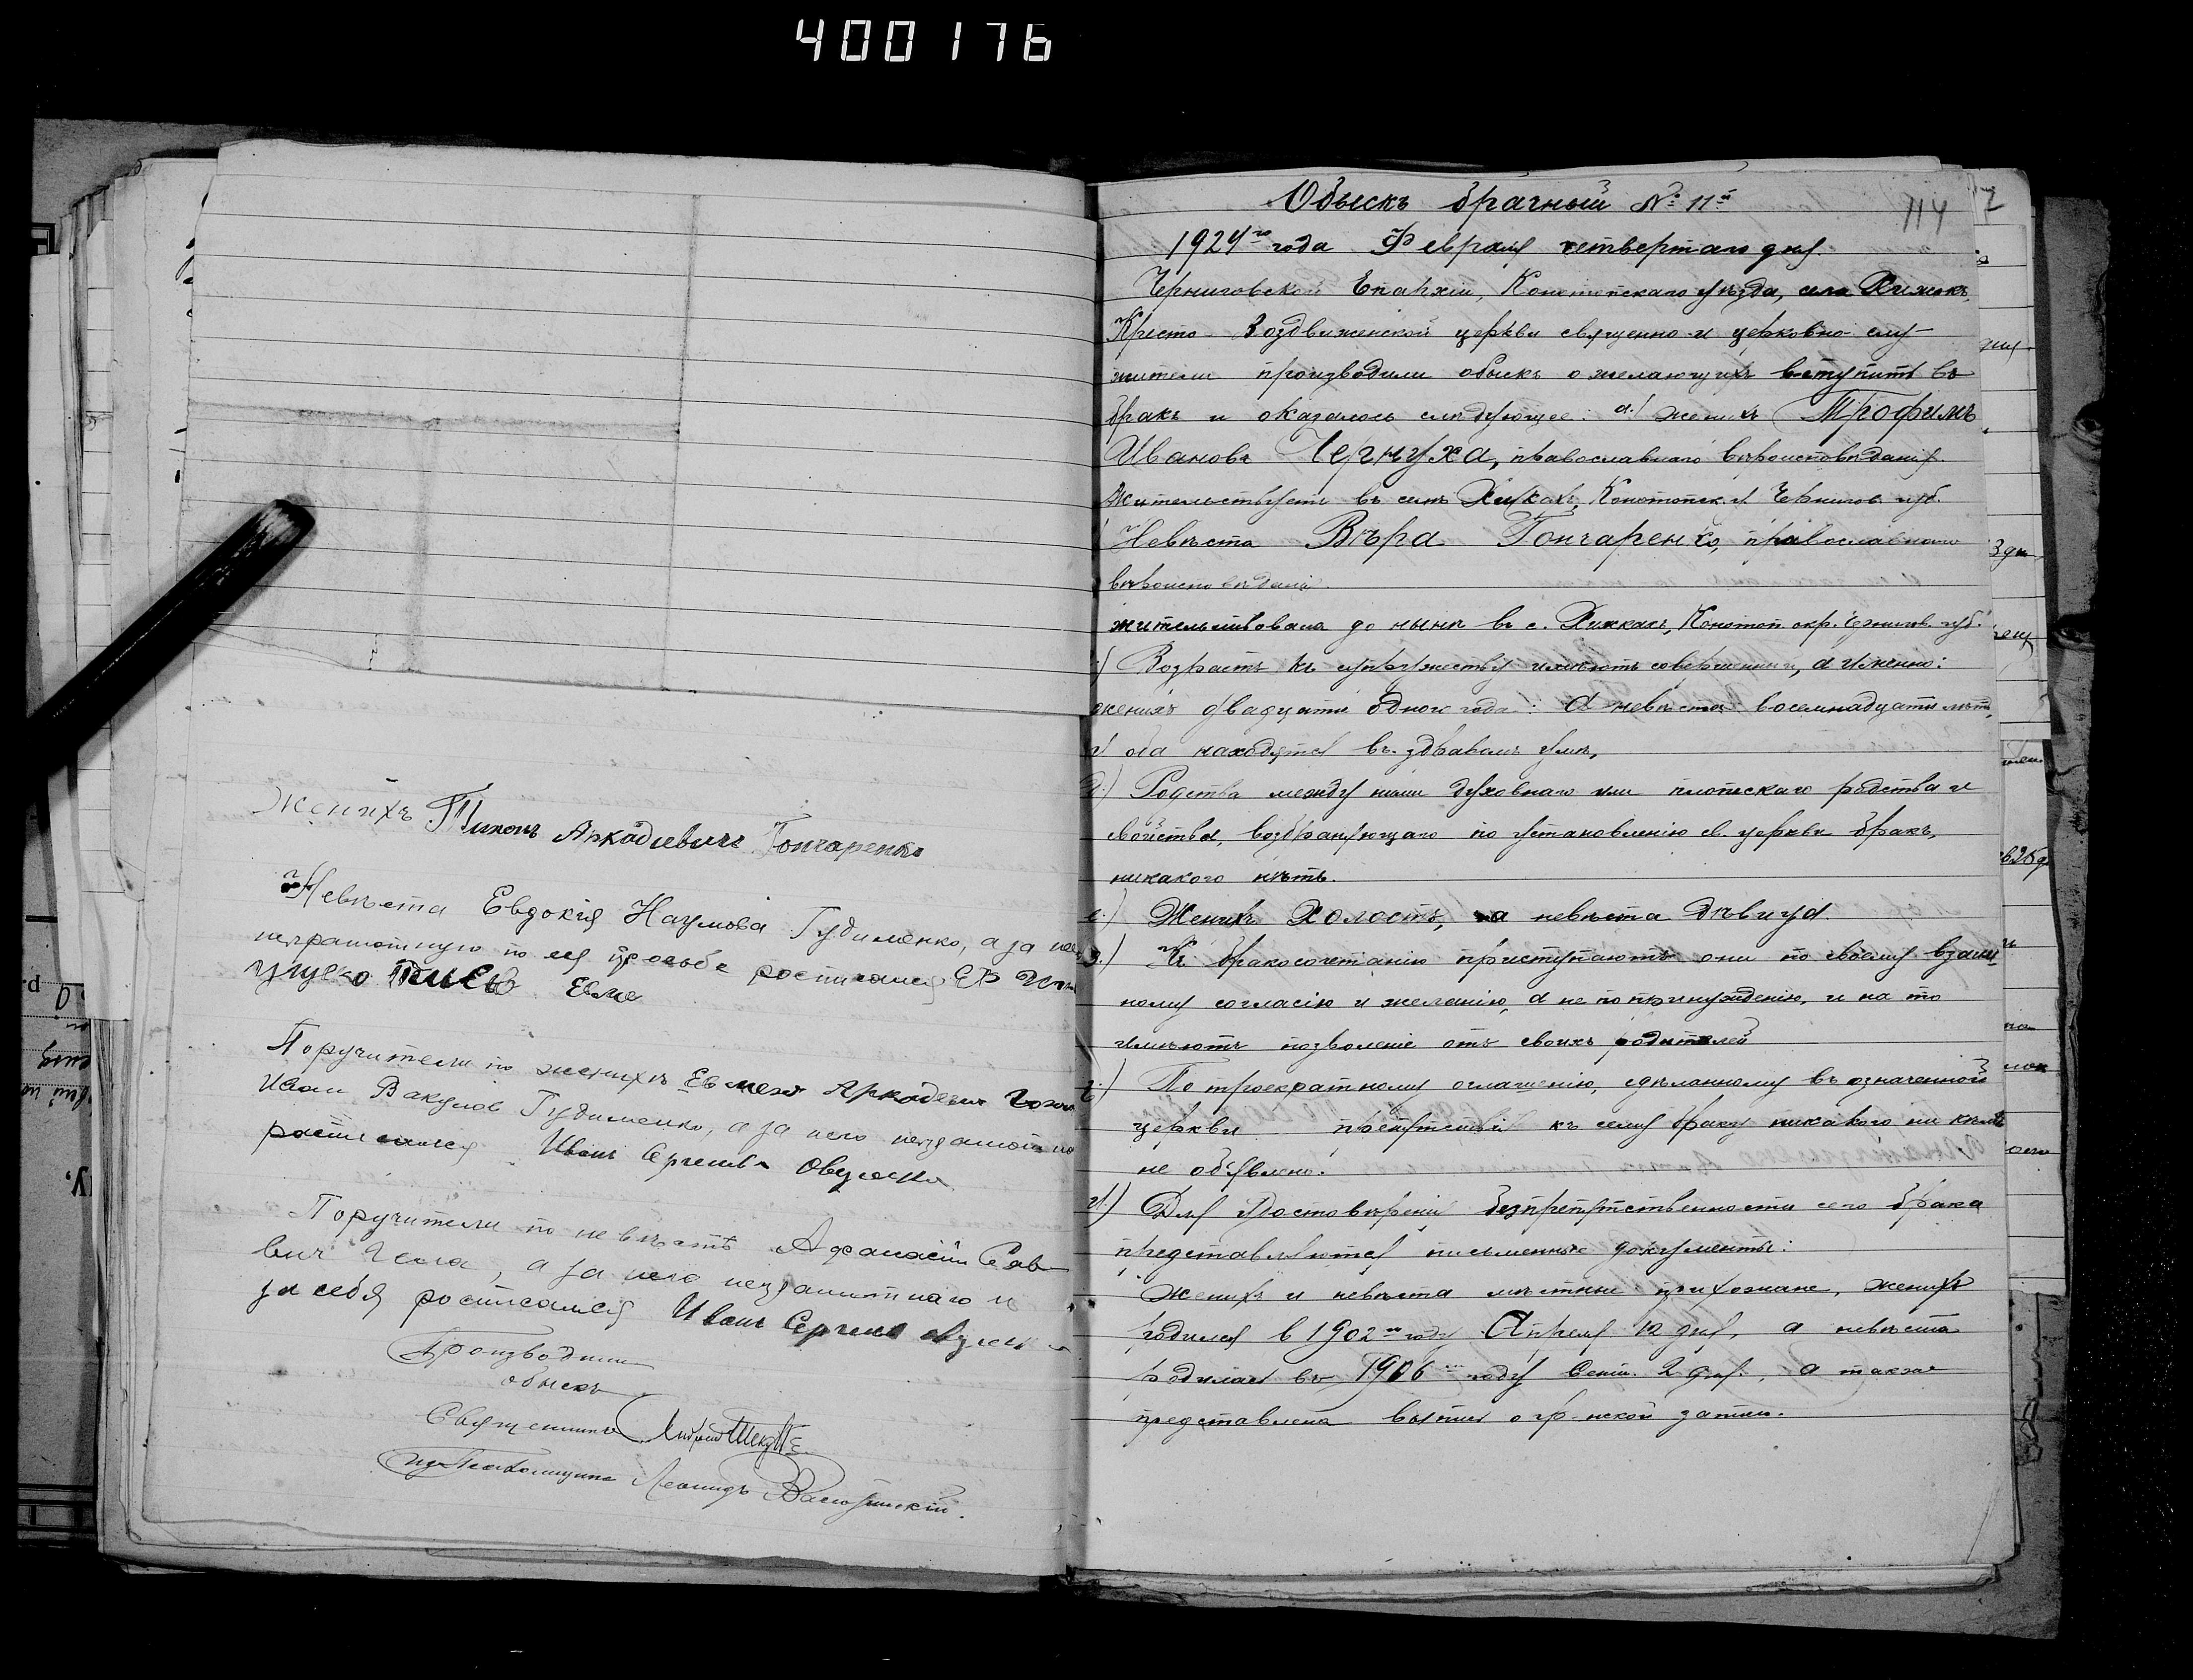 400176
Женихъ Тихонъ Аркадиевичъ Гончаренко
Невѣста Евдокія Наумова Гудименко, а за
неграмотную по ея просьбѣ росписался
Поручители по женихѣ Евмена Аркадиевич
Иван Вакулов Гудименко, а за него неграмотно
росписался Иванъ Сергиевъ Овуленко
Поручители по невѣстѣ Афанасій Сав
вич, а за него неграмотнаго и
за себя росписался Иванъ Сергиев
Производили
обыскъ
Священникъ
Псаломщикъ Леонидъ
Обыскъ брачный № 11й
114
1924го года Февраля четвертаго дня.
Черниговской Епархіи, Конотопскаго уѣзда, села Хижокъ,
Кресто-Воздвиженской церкви священно и церковно слу-
жители производили обыскъ о желающихъ вступить въ
бракъ и оказалось слѣдующее: а.) женихъ Трофимъ
Ивановъ Чернуха, православнаго вѣроисповѣданія
жительствуетъ въ селѣ Хижкахъ, Конотопск. у. Чернигов. губ.
Невѣста Вѣра Гончаренко, православнаго
вѣроисповѣданія.
жительствовала до нынѣ въ с. Хижкахъ, Конотоп. окр. Чернигов. губ.
Возрастъ къ супружеству имѣютъ совершенный, а именно:
женихъ двадцати одного года: а невѣста восемнадцати лѣтъ,
г) оба находятся въ здравомъ умѣ,
д.) Родства между ними духовнаго или плотскаго родства и
свойства, возбраняющаго по установленію св. церкви бракъ,
никакого нѣтъ.
е.) Женихъ холостъ, а невѣста дѣвица
з.) Къ бракосочетанію приступаютъ они по своему взаим
ному согласію и желанію, а не по принужденію, и на то
имѣютъ позволеніе отъ своихъ родителей
По троекратному оглашенію, сдѣланному въ означенной
церкви препятствія къ сему браку никакого ни кѣмъ
не объявлено.
и) Для удостовѣренія безпрепятственности сего брака
представляются письменные документы:
Женихъ и невѣста мѣстные прихожане, женихъ
родился в 1902м году Апреля 12 дня, а невѣста
родилась въ 1906м году Сент. 2 дня, а также
представлена выпись о гр-нской запис.